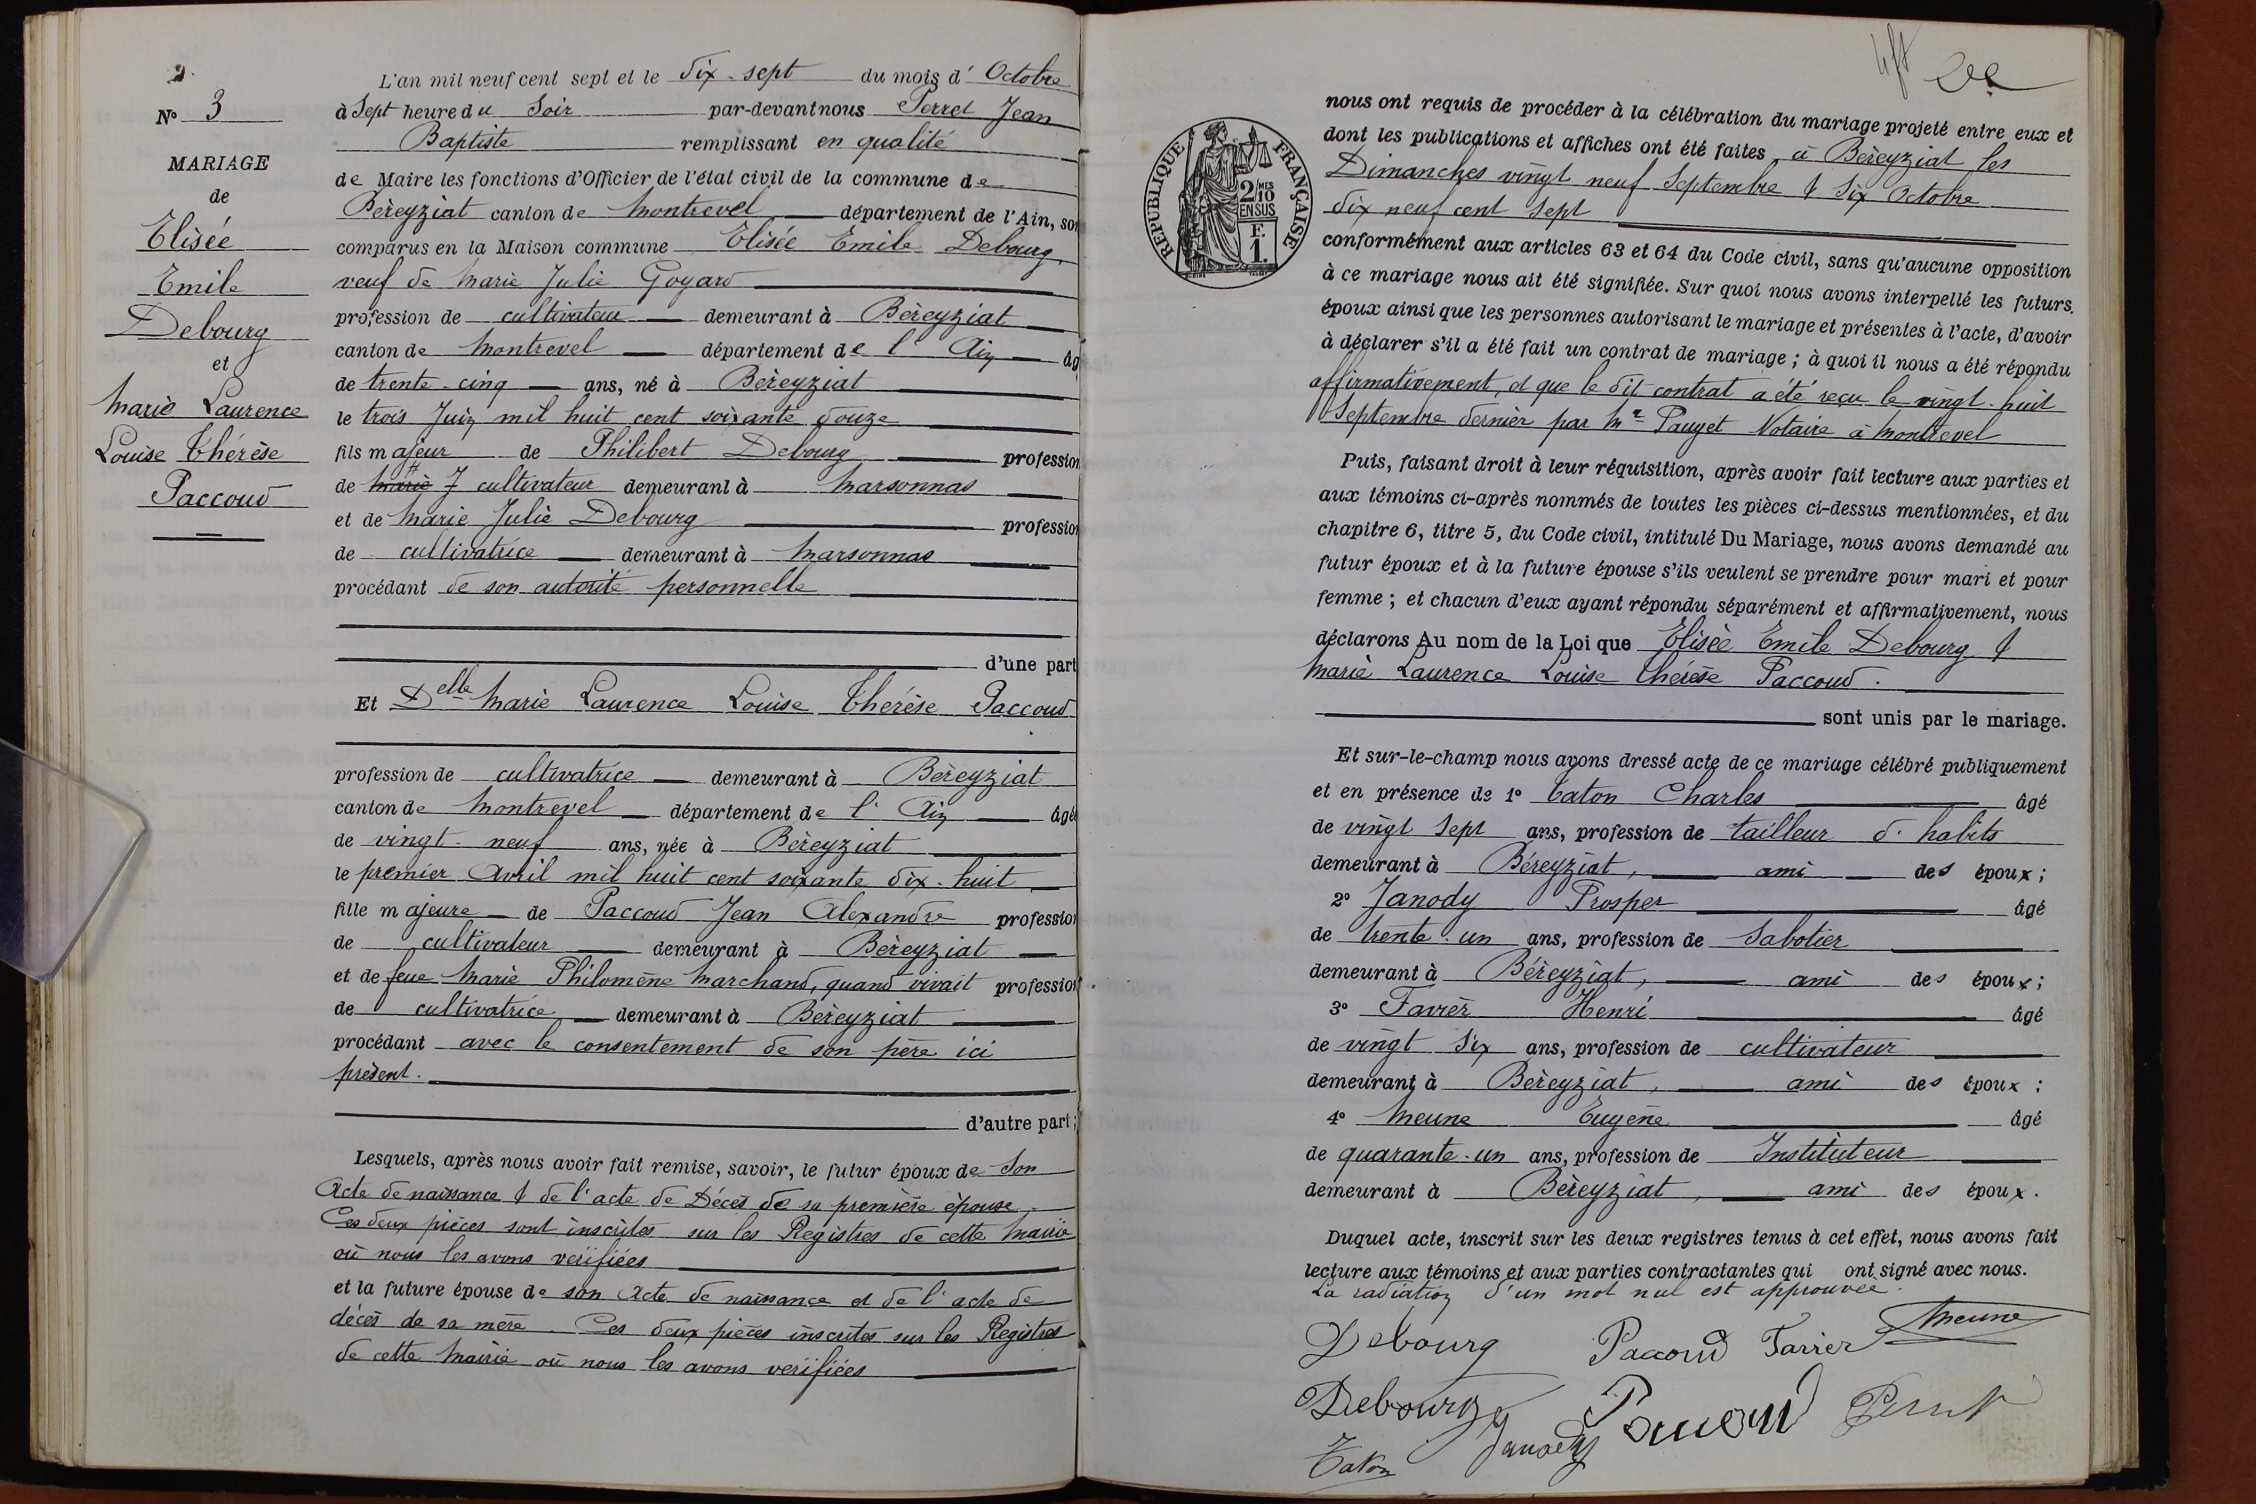 2.
N° 3
MARIAGE
de
Elisée
Emile
Debourg
et
Marie Laurence
Louise Thérèse
Paccoud
L'an mil neuf cent sept et le dix-sept du mois d'Octobre
à Sept heure du Soir par-devant nous Perret Jean
Baptiste remplissant en qualité
de Maire les fonctions d'Officier de l'état civil de la commune de
Béreyziat canton de Montrevel département de l'Ain, son
comparus en la Maison commune Elisée Emile Debourg,
veuf de Marie Julie Goyard
profession de cultivateur demeurant à Béreyziat
canton de Montrevel département de l'Ain âg
de trente-cinq ans, né à Béreyziat
le trois Juin mil huit cent soixante douze
fils majeur de Philibert Debourg profession
de cultivateur demeurant à Marsonnas
et de Marie Julie Debourg profession
de cultivatrice demeurant à Marsonnas
procédant de son autorité personnelle
d'une part
Et Delle Marie Laurence Louise Thérèse Paccoud
profession de cultivatrice demeurant à Béreyziat
canton de Montrevel département de l'Ain âgée
de vingt-neuf ans, née à Béreyziat
le premier Avril mil huit cent soixante dix-huit
fille majeure de Paccoud Jean Alexandre profession
de cultivateur demeurant à Béreyziat
et de feue Marie Philomène Marchand, quand vivait profession
de cultivatrice demeurant à Béreyziat
procédant avec le consentement de son père ici
présent.
d'autre part;
Lesquels, après nous avoir fait remise, savoir, le futur époux de son
Acte de naissance & de l'acte de Décès de sa première épouse,
Ces deux pièces sont inscrites sur les Registres de cette Mairie
où nous les avons vérifiées
et la future épouse de son Acte de naissance et de l'acte de
décès de sa mère. Ces deux pièces inscrites sur les Registres
de cette Mairie où nous les avons vérifiées
RÉPUBLIQUE FRANÇAISE
2 MES
10
EN SUS
F.
1.
nous ont requis de procéder à la célébration du mariage projeté entre eux et
dont les publications et affiches ont été faites à Béreyziat les
Dimanches vingt neuf Septembre & Six Octobre
dix neuf cent sept
conformément aux articles 63 et 64 du Code civil, sans qu'aucune opposition
à ce mariage nous ait été signifiée. Sur quoi nous avons interpellé les futurs
époux ainsi que les personnes autorisant le mariage et présentes à l'acte, d'avoir
à déclarer s'il a été fait un contrat de mariage; à quoi il nous a été répondu
affirmativement, et que le dit contrat a été reçu le vingt-huit
Septembre dernier par Mr Pauget Notaire à Montrevel
Puis, faisant droit à leur réquisition, après avoir fait lecture aux parties et
aux témoins ci-après nommés de toutes les pièces ci-dessus mentionnées, et du
chapitre 6, titre 5, du Code civil, intitulé Du Mariage, nous avons demandé au
futur époux et à la future épouse s'ils veulent se prendre pour mari et pour
femme; et chacun d'eux ayant répondu séparément et affirmativement, nous
déclarons Au nom de la Loi que Elisée Emile Debourg &
Marie Laurence Louise Thérèse Paccoud.
sont unis par le mariage.
Et sur-le-champ nous avons dressé acte de ce mariage célébré publiquement
et en présence de 1° Taton Charles âgé
de vingt sept ans, profession de tailleur d'habits
demeurant à Béreyziat, ami des époux;
2° Janody Prosper âgé
de trente-un ans, profession de Sabotier
demeurant à Béreyziat, ami des époux;
3° Favier Henri âgé
de vingt Six ans, profession de cultivateur
demeurant à Béreyziat, ami des époux;
4° Meune Eugène âgé
de quarante-un ans, profession de Instituteur
demeurant à Béreyziat, ami des époux.
Duquel acte, inscrit sur les deux registres tenus à cet effet, nous avons fait
lecture aux témoins et aux parties contractantes qui ont signé avec nous.
La radiation d'un mot nul est approuvée.
Debourg Paccoud Favier Meune
Debourg Janody Paccoud Perret
Taton